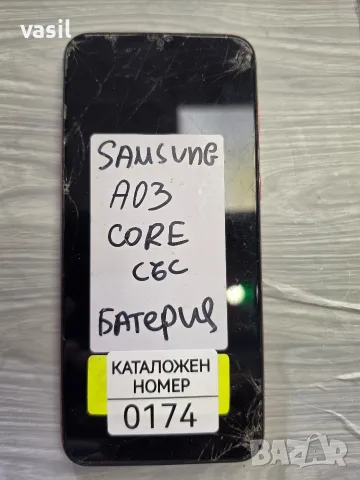 vasil
SAMSUNG
A03
CORE
СЪС
БАТЕРИЯ
КАТАЛОЖЕН
НОМЕР
0174
BAZAR